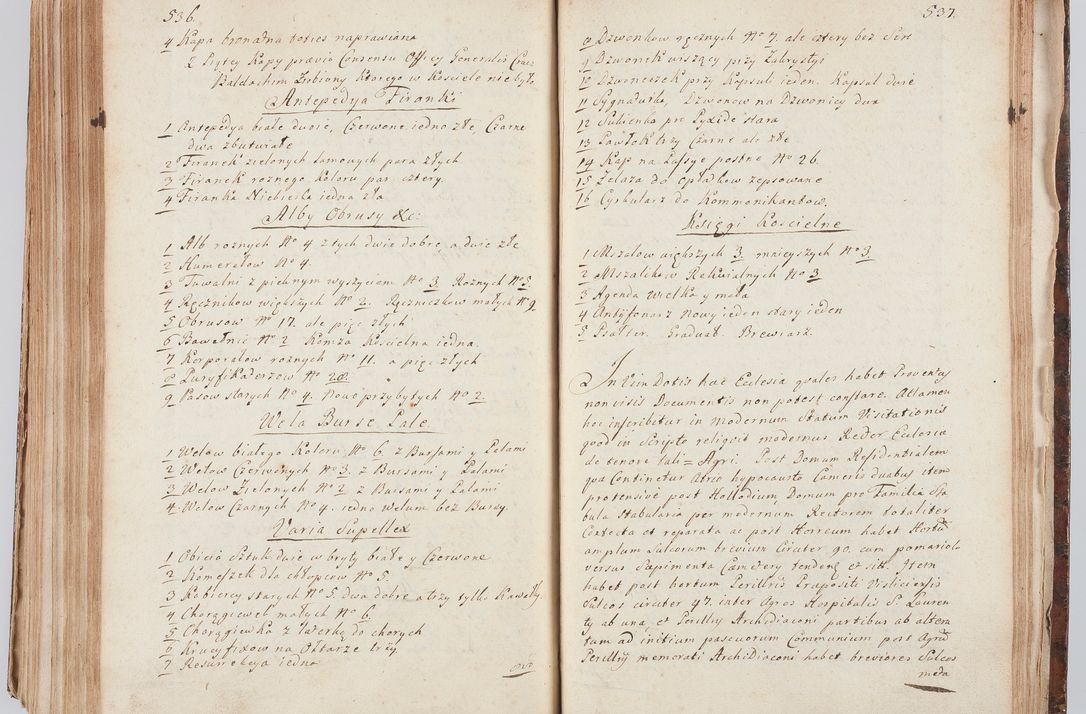 536.
4 Kapa bronatna toties naprawiana
2 Piątey Kapy prawie Consensu Officy Generalis Crac:
Baldachim Zrobiony Ktorego w Kosciele niebyło
Antepedya Firanki
1 Antepedya białe dwoie, Czerwone iedno złe, Czarne
dwa zbuturałe
2 Firanek zielonych lamowych para złych
3 Firanek roznego koloru par cztery.
4 Firanka Niebieska iedna zła
Alby Obrusy &c:
1 Alb roznych No 4 z tych dwie dobre, a dwie złe
2 Humerałow No 4.
3 Tuwalni z pieknym wyszyciem No 3. Roznych No 5.
4 Ręcznikow większych No 2. Ręczniczkow małych No 9.
5 Obrusow No 17. ale pięc złych
6 Bawełnic No 2 Komza Kościelna iedna.
7 Korporałow roznych No 11. a pięc złych
8 Puryfikaterzow No 28.
9 Pasow starych No 4. Nowo przybytych No 2.
Wela Burse Pale
1 Welow białego Koloru No 6. z Bursami y Palami
2 Welow Czerwonych No 3. z Bursami y Palami
3 Welow Zielonych No 2 z Bursami y Palami
4 Welow Czarnych No 4. iedno Welum bez Bursy.
Varia Supellex
1 Obicia Sztuk dwie w bryty białe y Czerwone
2 Komeszek dla chłopcow No 5.
3 Kobiercy starych No 5. dwa dobre a trzy tylko Kawałky
4 Chorągiewek małych No 6.
5 Chorągiewka z laterką do chorych
6 Krucyfixow na Ołtarze trzy
7 Resurekcya iedna
537.
8 Dzwonkow ręcznych No 7. ale cztery bez Serc
9 Dzwonek wiszący przy Zakrystyi
10 Dzwoneczek przy Kapsuli ieden. Kapsul dwie
11 Sygnaturka, Dzwonow na Dzwonicy dwa
12 Sukienka pro Pyxide stara
13 Pawłok trzy Czarne ale złe
14 Kap na Passye postne No 26.
15 Zelaza do opłatkow zepsowane
16 Cyrkularz do Kommonikantow.
Księgi Koscielne
1 Mszałow większych 3. mnieyszych No 3.
2 Mszalikow Rekwialnych No 3
3 Agenda Wielka y mała
4 Antyfonarz Nowy ieden stary ieden
5 Psałter. Graduał. Brewiarz.
In Vim Dotis hac Eclesia quales habet Proventus
non visis Documentis non potest constare. Attamen
hoc inscribitur in modernum Statum Visitationis
quod in Scripto reliquit modernus Rector Eclesia
de tenore tali = Agri. Post Domum Residentialem
qua Continetur Atreo hypocausto Cameris duabus item
protensive post Hollodium, Domum pro Familia Sta
bula Stabularia per modernum Rectorem totaliter
Contecta et reparata ac post Horreum habet Hortum
amplum Sulcorum brevium Circiter 90. cum pomariolo
versus Sapimenta Cametery tendens et sit. Item
habet post hortum Perillris Prapositi Visliciensis
Sulcos circiter 47. inter Agros Hospitalis S. Lauren
ty ab una, et Perillris Archidiaconi partibus ab altera
tam ad initium pascuorum Communium post Agrum
Perillris memorati Archidiaconi habet breviores Sulcos
meta